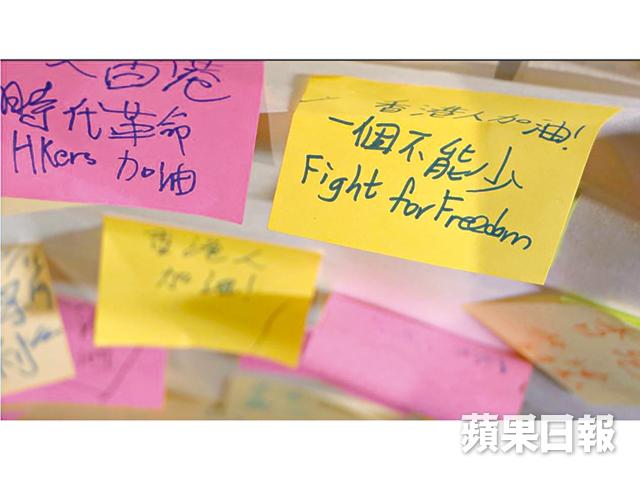 港
時代革命
HKers 加油
香港人加油!
一個不能少
Fight for Freedom
香港人
加油!
蘋果日報